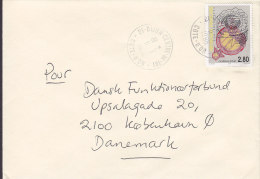 Pour
Dansk Funktionærforbund
Upsalagade 20,
2100 København Ø
Danemark
2.80